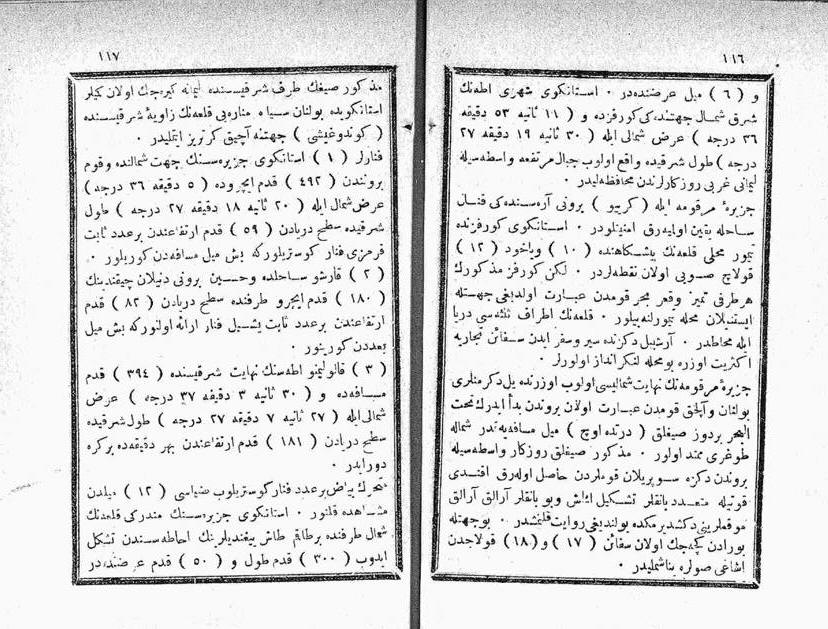 ١١٦
و ( ٦ ) ميل عرضنده‌در . استانكوى شهرى اطه‌نك
شرق شمال جهتنده‌كى كورفزده و ( ١١ ثانيه ٥٣ دقيقه
٣٦ درجه ) عرض شمالى ايله ( ٣٠ ثانيه ١٩ دقيقه ٢٧
درجه ) طول شرقيده واقع اولوب جبال مرتفعه واسطه‌سيله
ليمانى غربى روزكارلرندن محافظه‌ليدر .
جزيرهٔ مرقومه ايله ( كرييو ) برونى آره‌سنده‌كى قنال
ساحله يقين اولميه‌رق امنيتلودر . استانكوى كورفزنده
تيمور محلى قلعه‌نك پيشكاهنده ( ١٠ ) وياخود ( ١٢ )
قولاچ صويى اولان نقطه‌لردر . لكن كورفز مذكورك
هر طرفى تميز وقعر بحر قومدن عبارت اولديغى جهتله
ايستنيلان محله تيمورلنه‌بيلور . قلعه‌نك اطراف ثلثه‌سى دريا
ايله محاطدر . آرشيپل دكزنده سير وسفر ايدن سفائن تجاريه
اكثريت اوزره بو محله لنكر انداز اولورلر .
جزيرهٔ مرقومه‌نك نهايت شماليسى اولوب اوزرنده يل دكرمنلرى
بولنان وآلچق قومدن عبارت اولان بروندن بدأ ايدرك تحت
البحر بر دوز صيغلق ( درتده اوچ ) ميل مسافه‌يه‌قدر شماله
طوغرى ممتد اولور . مذكور صيغلق روزكار واسطه‌سيله
بروندن دكزه سوپريلان قوملردن حاصل اوله‌رق اقندى
قوتيله متعدد بانقلر تشكيل ايتمش وبو بانقلر آرالق آرالق
موقعلرينى دكشديرمكده بولنديغى روايت قلنمشدر . بو جهتله
بورادن كچه‌جك اولان سفائن ( ١٧ ) و ( ١٨ ) قولاجدن
اشاغى صولره يناشمامليدر .
١١٧
مذكور صيغك طرف شرقيسنده ليمانه كيره‌جك اولان كميلر
استانكويده بولنان سياه مناره‌يى قلعه‌نك زاويهٔ شرقيسنده
( كوندوغيشى ) جهتنه آچيق كرتريز ايتمليدر .
فنارلر ( ١ ) استانكوى جزيره‌سنك جهت شمالنده وقوم
برونندن ( ٤٩٢ ) قدم ايچروده ( ٥ دقيقه ٣٦ درجه )
عرض شمال ايله ( ٢٠ ثانيه ١٨ دقيقه ٢٧ درجه ) طول
شرقيده سطح دريادن ( ٥٩ ) قدم ارتفاعندن بر عدد ثابت
قرمزى فنار كوستريلوركه بش ميل مسافه‌دن كوريلور .
( ٢ ) قارشو ساحلده وحسين برونى دنيلان چيقنتينك
( ١٨٠ ) قدم ايچرو طرفنده سطح دريادن ( ٨٢ ) قدم
ارتفاعندن بر عدد ثابت يشيل فنار ارائه اولنوركه بش ميل
بعددن كورينور .
( ٣ ) قالوليمنو اطه‌سنك نهايت شرقيسنده ( ٣٩٤ ) قدم
مسافه‌ده و ( ٣٠ ثانيه ٣ دقيقه ٣٧ درجه ) عرض
شمالى ايله ( ٢٧ ثانيه ٧ دقيقه ٢٧ درجه ) طول شرقيده
سطح دريادن ( ١٨١ ) قدم ارتفاعندن بهر دقيقه‌ده بر كره
دور ايدر .
متحرك بياض بر عدد فنار كوستريلوب ضياسى ( ١٢ ) ميلدن
مشاهده قلنور . استانكوى جزيره‌سنك مندركى قلعه‌نك
شمال طرفنده بر طاقم طاش ييغنديلرينك احاطه‌سندن تشكل
ايدوب ( ٣٠٠ ) قدم طول و ( ٥٠ ) قدم عرضنده‌در